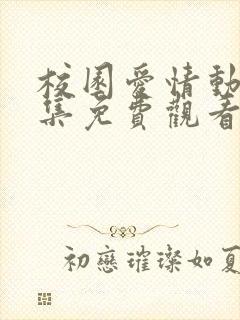 校園愛情動
集免費觀看
初戀璀璨如夏